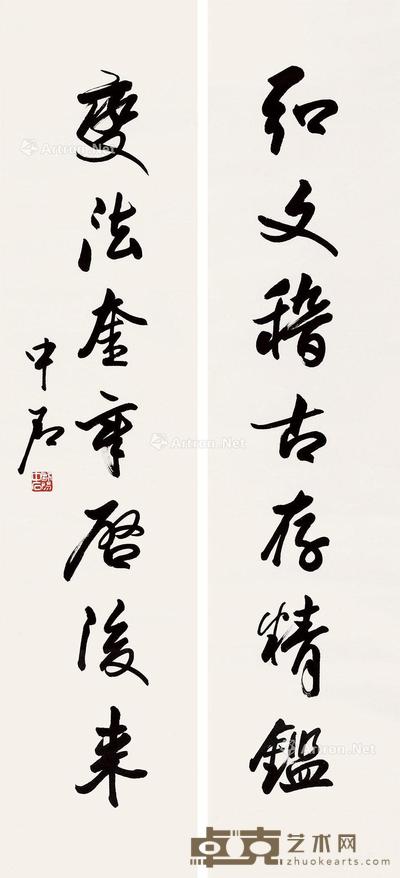 弘文稽古存精鑑
變法奎章启後来
中石
Artron.Net
Artron.Net
Artron.Net
卓克艺术网
zhuokearts.com